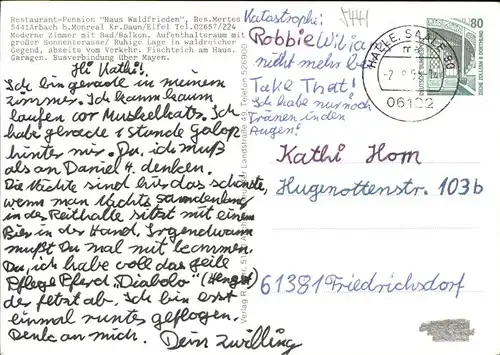 Restaurant-Pension "Haus Waldfrieden", Bes. Mertes
5441 Arbach b.Monreal Kr.Daun/Eifel Tel.02657/224
Moderne Zimmer mit Bad/Balkon. Aufenthaltsraum mit
großer Sonnenterasse/ Ruhige Lage in waldreicher
Gegend, abseits vom Verkehr. Fischteich am Haus.
Garagen. Busverbindung über Mayen.
Hi Kathi!
Ich bin gerade in meinem
Zimmer. Ich kann kaum
laufen vor Muskelkatz. Ich
habe gerade 1 Stunde Galop
hinter mir. Du, ich muß
als an Daniel H. denken.
Die Nächte sind hier das schönste,
wenn man Nachts
in der Reithalle sitzt mit einem
Bier in der Hand. Irgendwann
mußt Du mal mit kommen.
Du, ich habe voll das geile
Pflege Pferd „Diabolo" (Hengst)
der fetzt ab. Ich bin erst
einmal runter geflogen.
Denk an mich. Dein Zwilling
Katastrophe! 5441
Robbie Wil
nicht mehr b
Take That!
Ich habe nur noch
Tränen in den
Augen!
Landstraße 49, Telefon 526900
HALLE, SAALE
06122
80
DEUTSCHE BUNDESPOST
ZECHE ZOLLERN II DORTMUND
Kathi Horn
Hugenottenstr. 103b
61381 Friedrichsdorf